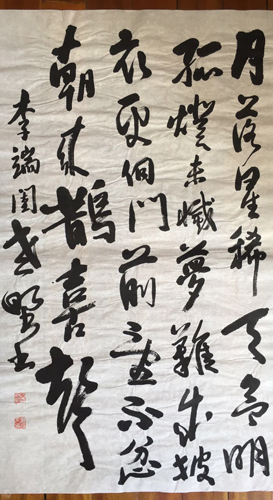 月落星稀天欲明
孤燈未滅夢難成披
衣更向門前望不忿
朝来鵲喜聲
李端闺书